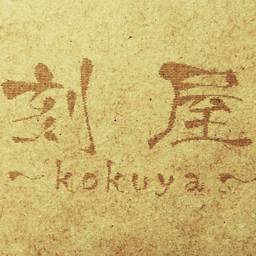 刻屋
~kokuya~